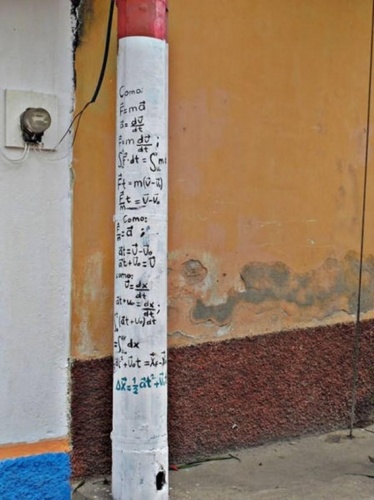 Como:
F⃗=ma⃗
a⃗=dv⃗/dt
F⃗=m dv⃗/dt;
∫F⃗·dt=∫m
F⃗t=m(v⃗-u⃗)
F⃗t/m=v⃗-v⃗₀
Como:
F⃗/m=a⃗;
a⃗t=v⃗-v⃗₀
a⃗t+v⃗₀=v⃗
Como:
v⃗=dx⃗/dt
a⃗t+v₀=dx⃗/dt;
∫(a⃗t+v₀)dt
=∫dx
t²+v⃗₀t=
Δx⃗=½a⃗t²+v⃗